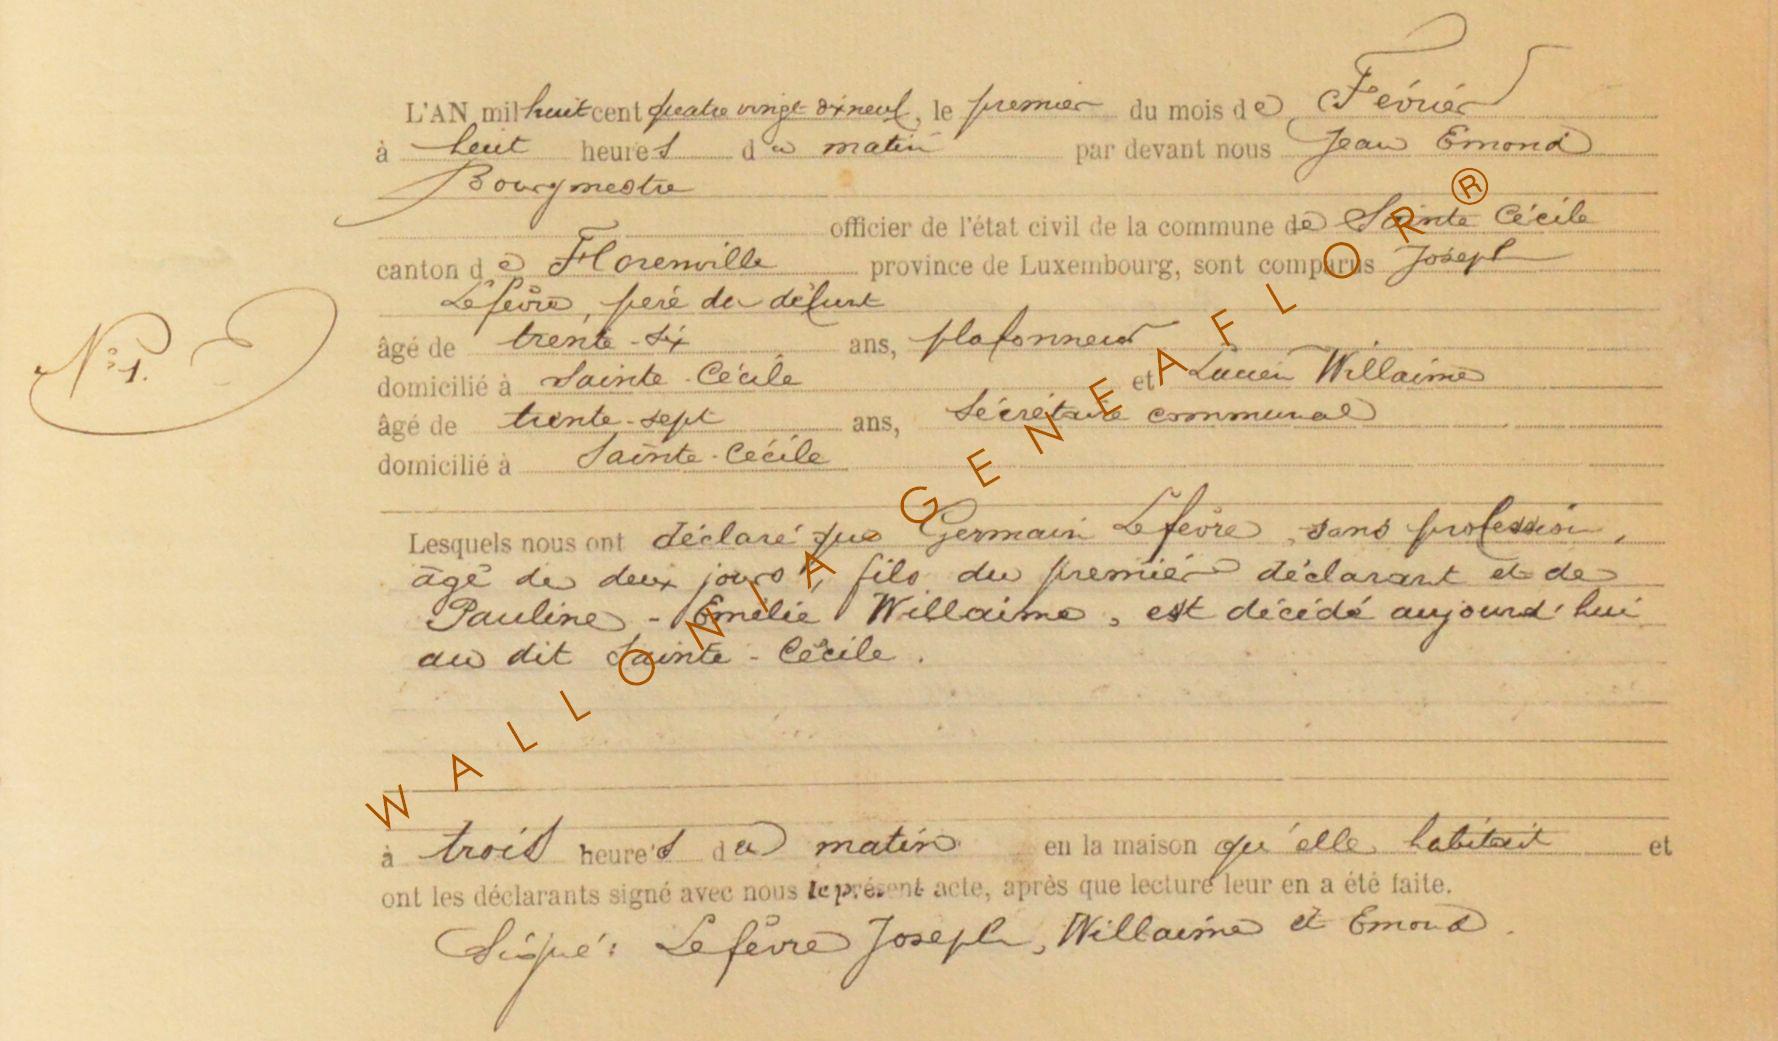 L'AN mil huit cent quatre vingt dixneuf, le premier du mois de Février
à huit heures du matin par devant nous Jean Emond
Bourgmestre
officier de l'état civil de la commune de Sainte Cécile
canton de Florenville province de Luxembourg, sont comparus Joseph
Lefèvre, père du défunt
N° 1.
âgé de trente-six ans, plafonneur
domicilié à Sainte-Cécile et Lucien Willaime
âgé de trente-sept ans, Sécrétaire communal
domicilié à Sainte-Cécile
Lesquels nous ont déclaré que Germain Lefèvre, sans profession,
âgé de deux jours, fils du premier déclarant et de
Pauline-Emélie Willaime, est décédé aujourd'hui
au dit Sainte-Cécile.
à trois heures du matin en la maison qu'elle habitait et
ont les déclarants signé avec nous le présent acte, après que lecture leur en a été faite.
Signé: Lefèvre Joseph, Willaime et Emond.
WALLONIA GENEAFLOR ®